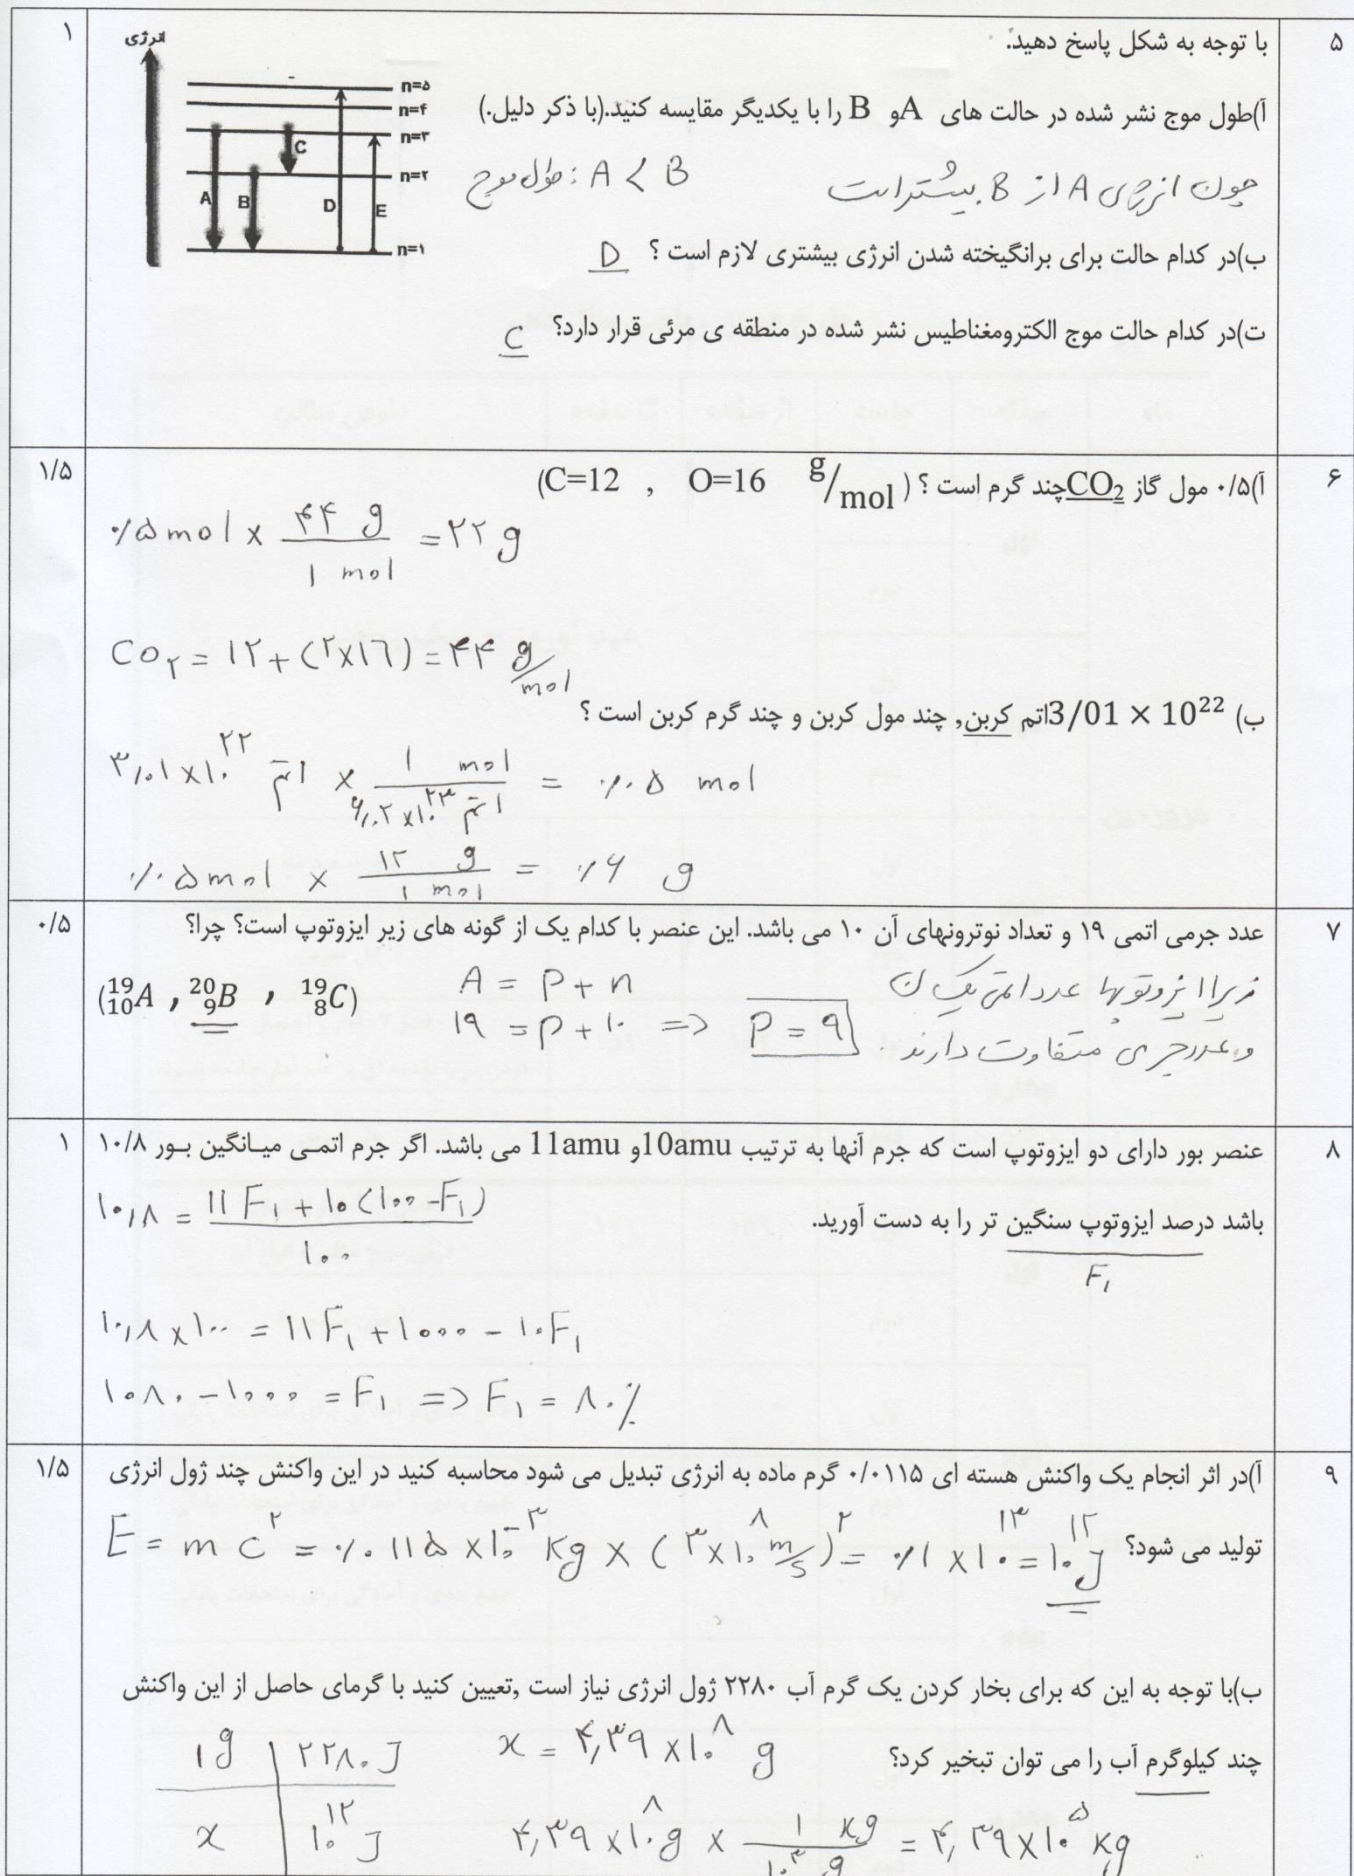 ۵
با توجه به شکل پاسخ دهید.
۱
انرژی
n=۵
n=۴
n=۳
n=۲
n=۱
A
B
C
D
E
آ)طول موج نشر شده در حالت های A و B را با یکدیگر مقایسه کنید.(با ذکر دلیل.)
چون انرژی A از B بیشتر است
طول موج : A < B
ب)در کدام حالت برای برانگیخته شدن انرژی بیشتری لازم است ؟ D
ت)در کدام حالت موج الکترومغناطیس نشر شده در منطقه ی مرئی قرار دارد؟ C
۶
آ)۰/۵ مول گاز CO₂ چند گرم است ؟ (C=12 , O=16 g/mol)
۱/۵
۰/۵ mol × ۴۴ g / ۱ mol = ۲۲ g
CO۲ = ۱۲ + (۲×۱۶) = ۴۴ g/mol
ب) 3/01 × 10²² اتم کربن, چند مول کربن و چند گرم کربن است ؟
۳/۰۱ × ۱۰^۲۲ اتم × ۱ mol / ۶/۰۲ × ۱۰^۲۳ اتم = ۰/۰۵ mol
۰/۰۵ mol × ۱۲ g / ۱ mol = ۰/۶ g
۷
عدد جرمی اتمی ۱۹ و تعداد نوترونهای آن ۱۰ می باشد. این عنصر با کدام یک از گونه های زیر ایزوتوپ است؟ چرا؟
۰/۵
(¹⁹₁₀A , ²⁰₉B , ¹⁹₈C)
A = P + n
۱۹ = P + ۱۰ => P = ۹
زیرا ایزوتوپها عدد اتمی یکسان
و عدد جرمی متفاوت دارند.
۸
عنصر بور دارای دو ایزوتوپ است که جرم آنها به ترتیب 10amu و 11amu می باشد. اگر جرم اتمـی میـانگین بـور ۱۰/۸
۱
باشد درصد ایزوتوپ سنگین تر را به دست آورید.
F₁
۱۰,۸ = ۱۱ F₁ + ۱۰ (۱۰۰ - F₁) / ۱۰۰
۱۰,۸ × ۱۰۰ = ۱۱ F₁ + ۱۰۰۰ - ۱۰ F₁
۱۰۸۰ - ۱۰۰۰ = F₁ => F₁ = ۸۰٪
۹
آ)در اثر انجام یک واکنش هسته ای ۰/۰۱۱۵ گرم ماده به انرژی تبدیل می شود محاسبه کنید در این واکنش چند ژول انرژی
۱/۵
تولید می شود؟
E = m c^۲ = ۰/۰۱۱۵ × ۱۰^-۳ kg × (۳×۱۰^۸ m/s)^۲ = ۰/۱ × ۱۰^۱۳ = ۱۰^۱۲ J
ب)با توجه به این که برای بخار کردن یک گرم آب ۲۲۸۰ ژول انرژی نیاز است ,تعیین کنید با گرمای حاصل از این واکنش
چند کیلوگرم آب را می توان تبخیر کرد؟
۱ g | ۲۲۸۰ J
x | ۱۰^۱۲ J
x = ۴,۳۹ × ۱۰^۸ g
۴,۳۹ × ۱۰^۸ g × ۱ kg / ۱۰^۳ g = ۴,۳۹ × ۱۰^۵ kg